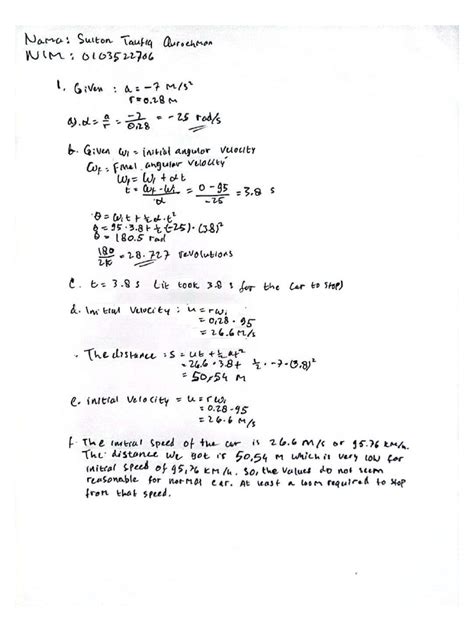 Nama: Sulton Taufiq Qurochman
NIM: 0103522706
1. Given : a = -7 m/s²
r = 0.28 m
a). α = a/r = -7/0.28 = -25 rad/s
b. Given ωi = initial angular velocity
ωf = Final angular velocity
ωf = ωi + αt
t = ωf - ωi / α = 0 - 95 / -25 = 3.8 s
θ = ωi t + ½ α . t²
θ = 95 . 3.8 + ½ (-25) . (3.8)²
θ = 180.5 rad
180/2π = 28.727 revolutions
C. t = 3.8 s (it took 3.8 s for the car to stop)
d. Initial Velocity : u = rωi
= 0.28 . 95
= 26.6 m/s
. The distance : s = ut + ½ at²
= 26.6 . 3.8 + ½ . -7 . (3.8)²
= 50,54 m
e. initial velocity = u = rωi
= 0.28 . 95
= 26.6 m/s
f. The initial speed of the car is 26.6 m/s or 95.76 km/h.
The distance we got is 50,54 m which is very low for
initial speed of 95,76 km/h. So, the values do not seem
reasonable for normal car. At least a 100m required to stop
from that speed.